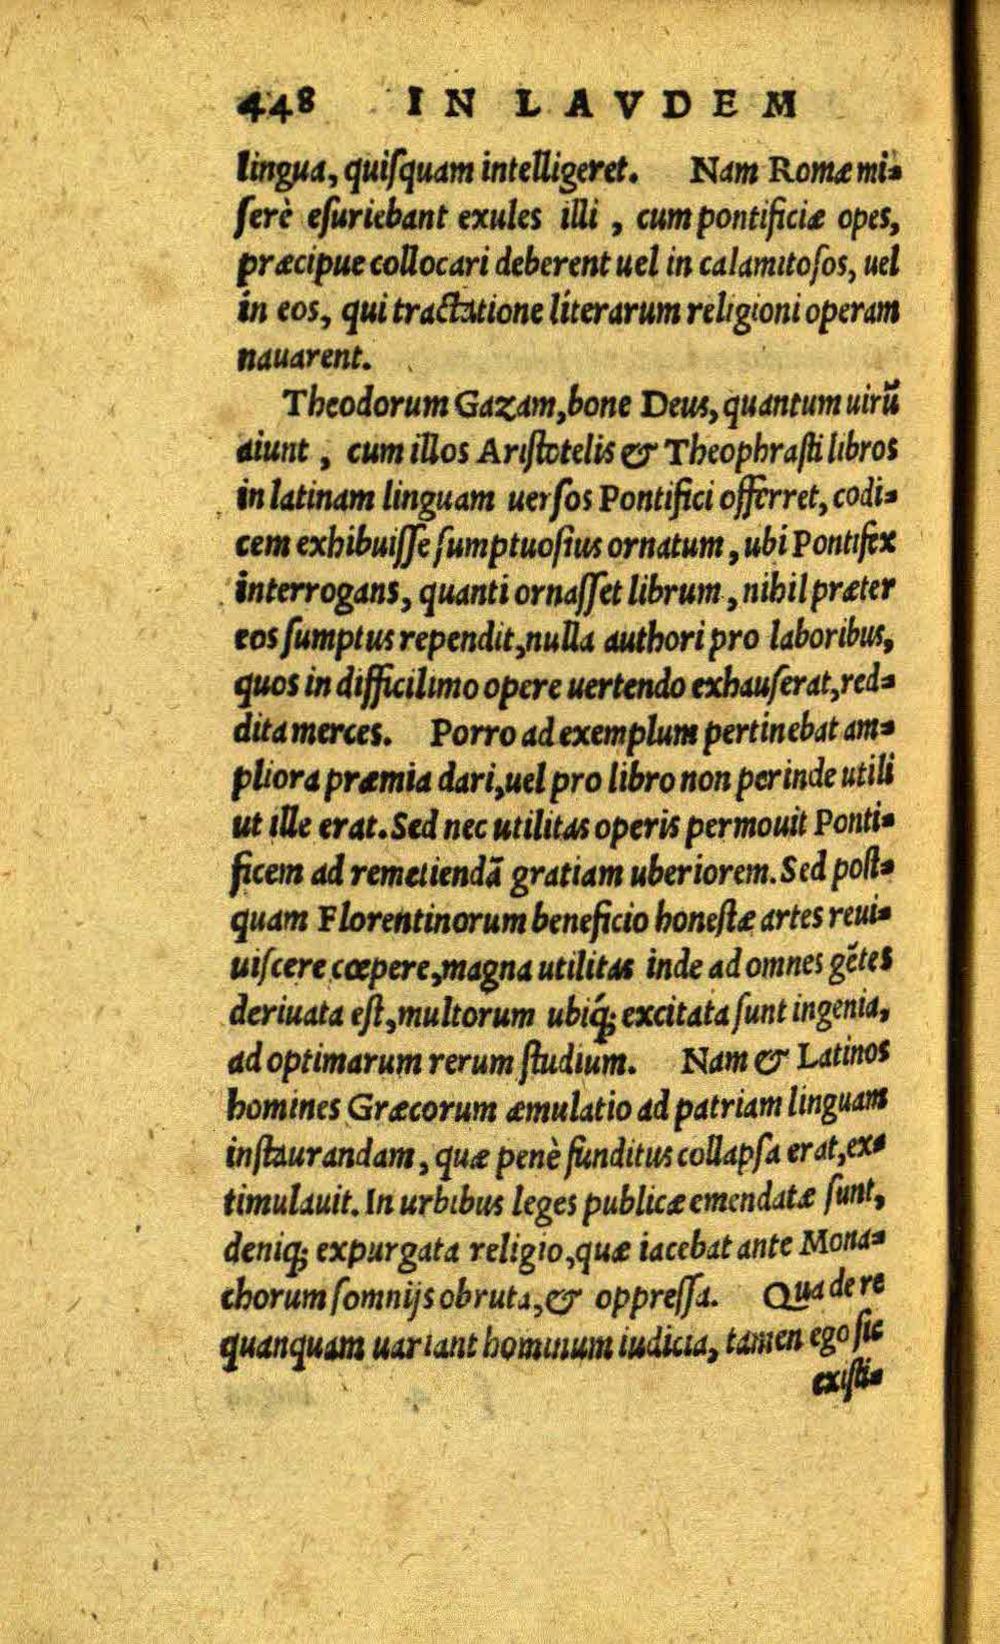 448 IN LAVDEM
lingua, quiſquam intelligeret. Nam Romæ mi-
ſerè eſuriebant exules illi, cum pontificiæ opes,
præcipue collocari deberent uel in calamitoſos, uel
in eos, qui tractatione literarum religioni operam
nauarent.
Theodorum Gazam, bone Deus, quantum uirũ
aiunt, cum illos Ariſtotelis & Theophraſti libros
in latinam linguam uerſos Pontifici offerret, codi-
cem exhibuiſſe ſumptuoſius ornatum, ubi Pontifex
interrogans, quanti ornaſſet librum, nihil præter
eos ſumptus rependit, nulla authori pro laboribus,
quos in difficilimo opere uertendo exhauſerat, red-
dita merces. Porro ad exemplum pertinebat am-
pliora præmia dari, uel pro libro non perinde utili
ut ille erat. Sed nec utilitas operis permouit Ponti-
ficem ad remetiendã gratiam uberiorem. Sed poſt-
quam Florentinorum beneficio honeſtæ artes reui-
uiſcere cœpere, magna utilitas inde ad omnes gẽtes
deriuata eſt, multorum ubiq́; excitata ſunt ingenia,
ad optimarum rerum ſtudium. Nam & Latinos
homines Græcorum æmulatio ad patriam linguam
inſtaurandam, quæ penè funditus collapſa erat, ex-
timulauit. In urbibus leges publicæ emendatæ ſunt,
deniq; expurgata religio, quæ iacebat ante Mona-
chorum ſomnijs obruta, & oppreſſa. Qua de re
quanquam uariant hominum iudicia, tamen ego ſic
exiſti-